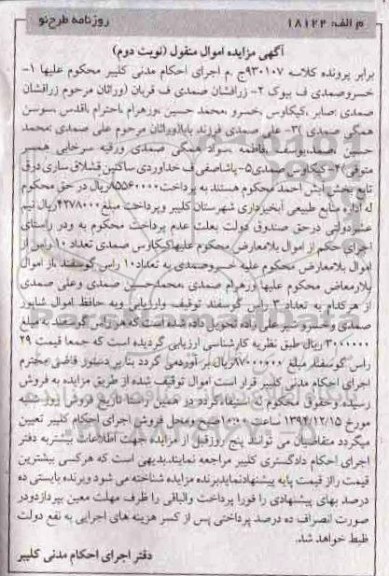 م الف: ۱۸۱۲۲ روزنامه طرح‌نو
آگهی مزایده اموال منقول (نوبت دوم)
برابر پرونده کلاسه ۹۳۰۱۰۷ج .م اجرای احکام مدنی کلیبر محکوم علیها ۱-
خسروصمدی ف بیوک ۲- زرافشان صمدی ف قربان (وراثان مرحوم زرافشان
صمدی :صابر ،کیکاوس ،خسرو ،محمد حسین ،ورهرام ،احترام ،اقدس ،سوسن
همگی صمدی )۳- علی صمدی فرزند بابا(وراثان مرحوم علی صمدی :محمد
حسین صمد،یوسف ،فاطمه ،سواد همگی صمدی ورقیه سرخابی همسر
متوفی )۴-کیکاوس صمدی۵-پاشاصفی ف خداوردی ساکنین قشلاق ساری درق
تابع بخش آبش احمد محکوم هستند به پرداخت۸۵۵۶۰۰۰۰ریال در حق محکوم
له اداره منابع طبیعی آبخیزداری شهرستان کلیبر وپرداخت مبلغ۴۲۷۸۰۰۰ریال نیم
عشردولتی درحق صندوق دولت بعلت عدم پرداخت محکوم به ودر راستای
اجرای حکم از اموال بلامعارض محکوم علیهاکیکاوس صمدی تعداد ۱۰ راس از
اموال بلامعارض محکوم علیه خسروصمدی به تعداد۱۰ راس گوسفند ،از اموال
بلامعارض محکوم علیها ورهرام صمدی ،محمدحسین صمدی وعلی صمدی
از هرکدام به تعداد ۳ راس گوسفند توقیف وارزیابی وبه حافظ اموال
صمدی وخسرو شیر علی زاده تحویل داده شده است که هر راس گوسفند به مبلغ
۳۰۰۰۰۰۰ ریال طبق نظریه کارشناسی ارزیابی گردیده است که جمعا قیمت ۲۹
راس گوسفند مبلغ ۸۷۰۰۰۰۰۰ریال بر آوردمی گردد بنابر دستور قاضی محترم
اجرای احکام مدنی کلیبر قرار است اموال توقیف شده از طریق مزایده به فروش
رسیده وحقوق محکوم له استیفاگردد در همین راستا تاریخ فروش روز شنبه
مورخ ۱۳۹۴/۱۲/۱۵ ساعت ۱۰:۰۰صبح ومحل فروش اجرای احکام کلیبر تعیین
میگردد متقاضیان می توانند پنج روزقبل از مزایده جهت اطلاعات بیشتربه دفتر
اجرای احکام دادگستری کلیبر مراجعه نمایند.بدیهی است که هرکسی بیشترین
قیمت رااز قیمت پایه پیشنهادنمایدبرنده مزایده شناخته می شود وبرنده بایستی ده
درصد بهای پیشنهادی را فورا پرداخت والباقی را ظرف مهلت معین بپردازدودر
صورت انصراف ده درصد پرداختی پس از کسر هزینه های اجرایی به نفع دولت
ظبط خواهد شد.
دفتر اجرای احکام مدنی کلیبر